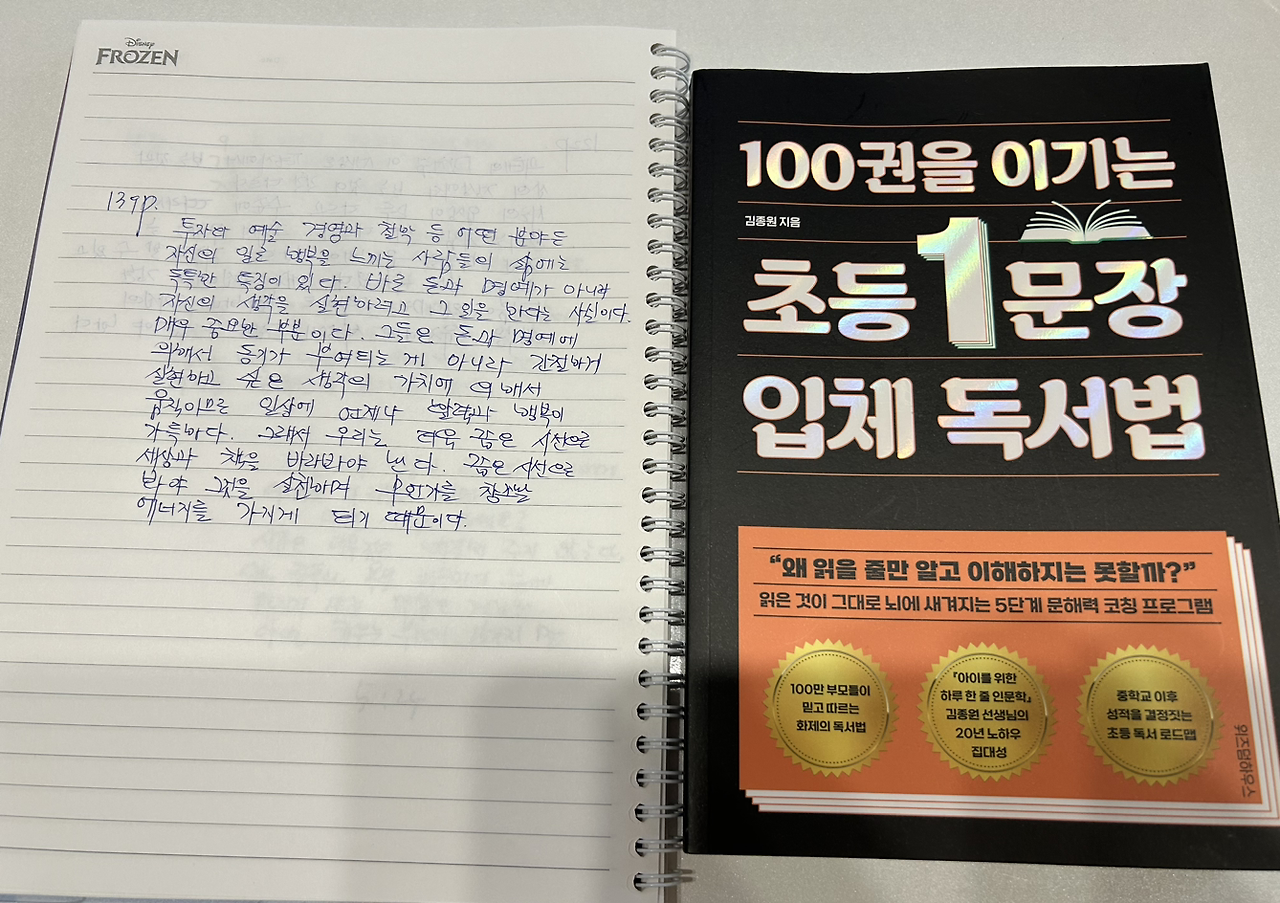 Disney
FROZEN
139p.
투자와 예술 경영과 철학 등 어떤 분야든
자신의 일로 행복을 느끼는 사람들의 삶에는
독특한 특징이 있다. 바로 돈과 명예가 아니라
자신의 생각을 실현하려고 그 일을 한다는 사실이다.
매우 중요한 부분이다. 그들은 돈과 명예에
의해서 동기가 부여되는 게 아니라 간절하게
실현하고 싶은 생각의 가치에 의해서
움직이므로 일상에 언제나 활력과 행복이
가득하다. 그래서 우리는 더욱 깊은 시선으로
세상과 책을 바라봐야 한다. 깊은 시선으로
봐야 그것을 실천하며 무언가를 창조할
에너지를 가지게 되기 때문이다.
100권을 이기는
김종원 지음
초등 1문장
입체 독서법
“왜 읽을 줄만 알고 이해하지는 못할까?”
읽은 것이 그대로 뇌에 새겨지는 5단계 문해력 코칭 프로그램
100만 부모들이
믿고 따르는
화제의 독서법
『아이를 위한
하루 한 줄 인문학』
김종원 선생님의
20년 노하우
집대성
중학교 이후
성적을 결정짓는
초등 독서 로드맵
위즈덤하우스